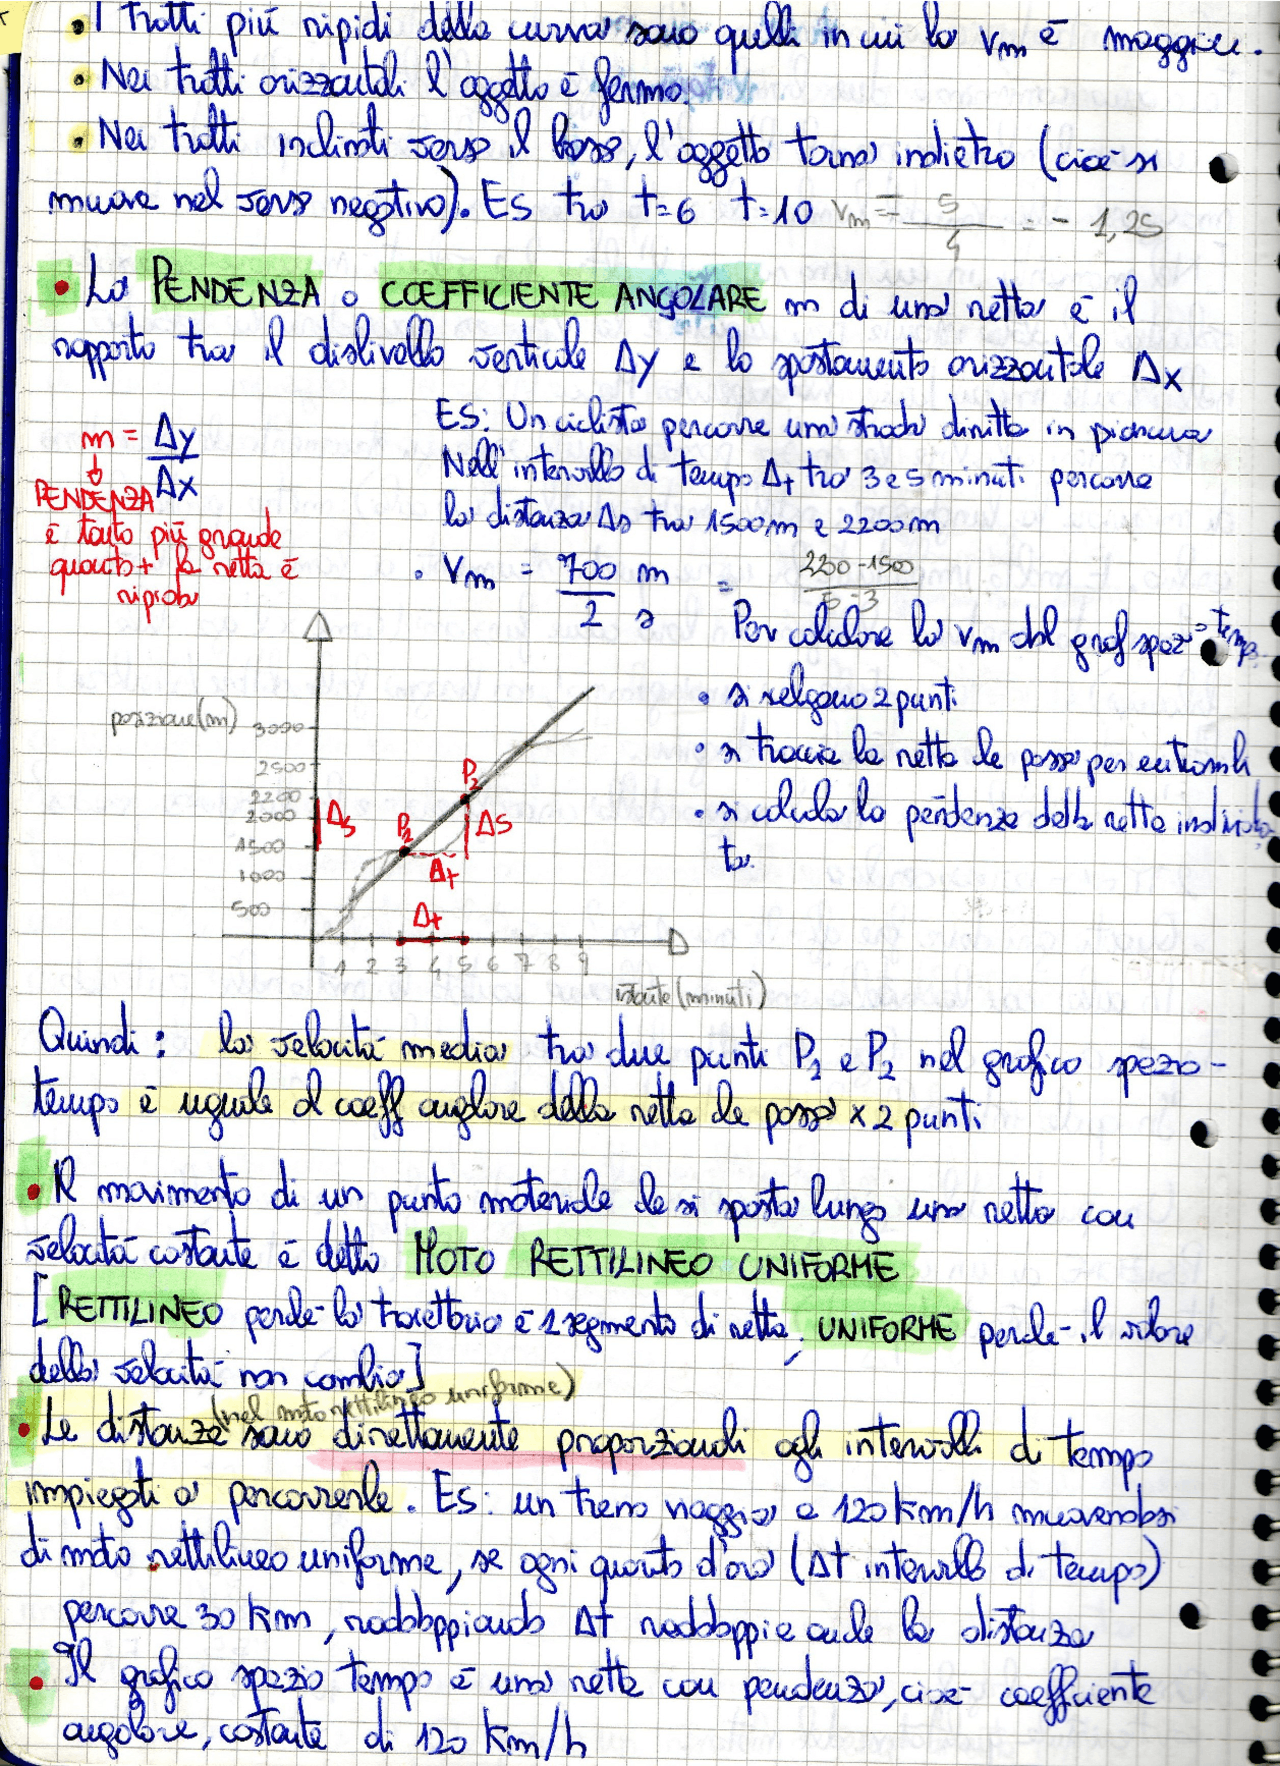 • I tratti più ripidi della curva sono quelli in cui la vm è maggiore.
• Nei tratti orizzontali l'oggetto è fermo.
• Nei tratti inclinati verso il basso, l'oggetto torna indietro (cioè si
muove nel verso negativo). Es tra t=6 t=10 vm = - 5/4 = - 1,25
• La PENDENZA o COEFFICIENTE ANGOLARE m di una retta è il
rapporto tra il dislivello verticale Δy e lo spostamento orizzontale Δx
m = Δy/Δx
↓
PENDENZA
è tanto più grande
quanto + la retta è
ripida
ES: Un ciclista percorre una strada diritta in pianura
Nell'intervallo di tempo Δt tra 3 e 5 minuti percorre
la distanza Δs tra 1500m e 2200m
• Vm = 700 m / 2 s = 2200-1500 / 5-3
Per calcolare la vm dal graf spaz-temp
• si selgono 2 punti
• si traccia la retta che passa per entrambi
• si calcola la pendenza della retta individua
ta.
posizione (m)
3000
2500
2200
2000
1500
1000
500
Δs
P2
P2
Δs
Δt
Δt
1 2 3 4 5 6 7 8 9
istante (minuti)
Quindi: la velocità media tra due punti P2 e P2 nel grafico spazio-
tempo è uguale al coeff angolare della retta che passa x 2 punti
• Il movimento di un punto materiale che si sposta lungo una retta con
velocità costante è detto MOTO RETTILINEO UNIFORME
[RETTILINEO perché la traiettoria è 1 segmento di retta, UNIFORME perché il valore
della velocità non cambia]
(nel moto rettilineo uniforme)
• Le distanze sono direttamente proporzionali agli intervalli di tempo
impiegati a percorrerle. Es: un treno viaggia a 120 km/h muovendosi
di moto rettilineo uniforme, se ogni quarto d'ora (Δt intervallo di tempo)
percorre 30 Km, raddoppiando Δt raddoppia anche la distanza
• Il grafico spazio tempo è una retta con pendenza, cioè coefficiente
angolare, costante di 120 Km/h